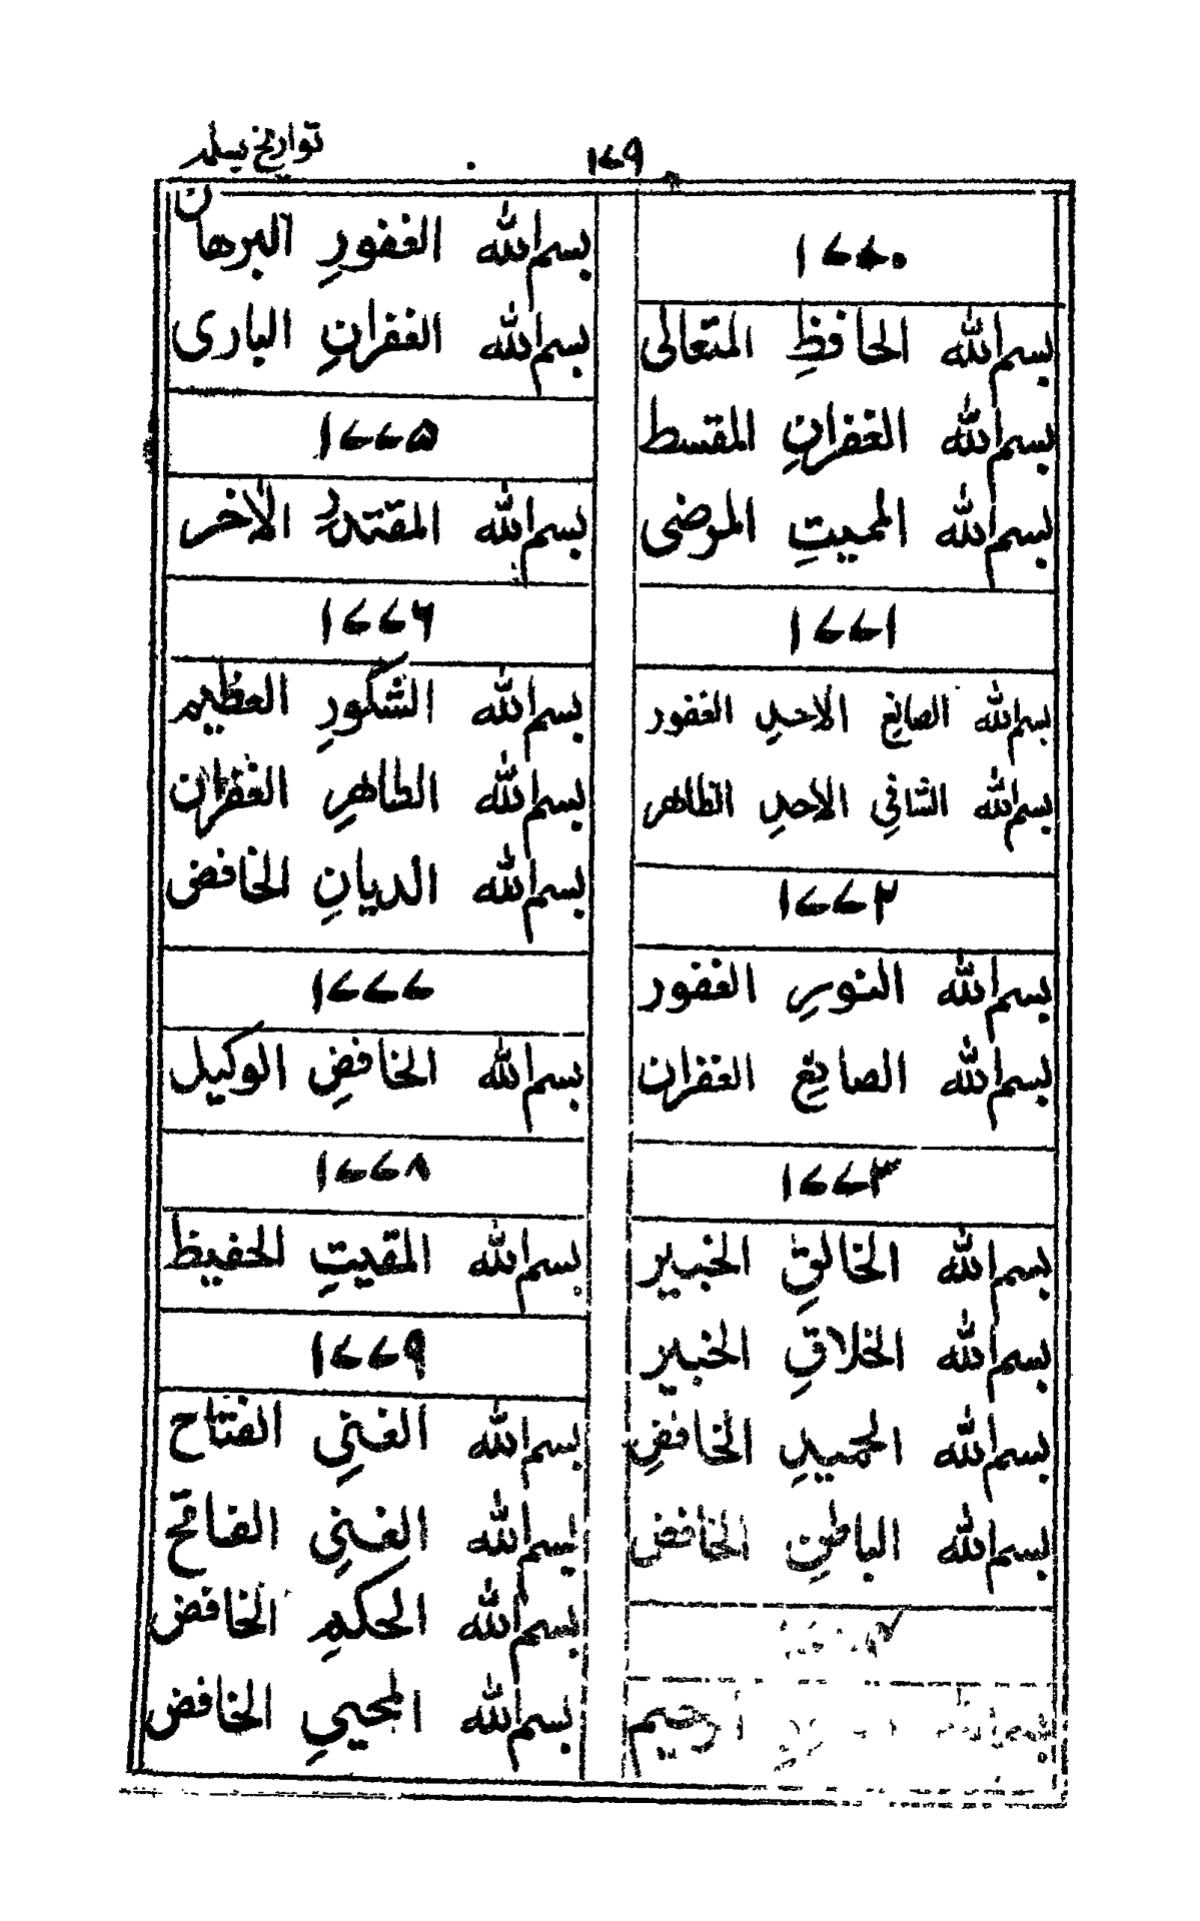 تواریخ
۱۷۹
۱۷۷۰
بسم الله الحافظِ المتعالی
بسم الله الغفرانِ المقسط
بسم الله المميتِ المرضی
۱۷۷۱
بسم الله الصانعِ الاحدِ الغفور
بسم الله الشافیِ الاحدِ الطاهر
۱۷۷۲
بسم الله النورِ الغفور
بسم الله الصانعِ الغفران
۱۷۷۳
بسم الله الخالقِ الخبير
بسم الله الخلاقِ الخبير
بسم الله الحميدِ الخافضِ
بسم الله الباطنِ الخافض
بسم الله الرحيم
بسم الله الغفورِ البرهان
بسم الله الغفرانِ الباری
۱۷۷۵
بسم الله المقتدرِ الاٰخر
۱۷۷۶
بسم الله الشكورِ العظيم
بسم الله الطاهرِ الغفران
بسم الله الديانِ الخافض
۱۷۷۷
بسم الله الخافضِ الوكيل
۱۷۷۸
بسم الله المقيتِ الحفيظ
۱۷۷۹
بسم الله الغنیِ الفتاح
بسم الله الغنیِ الفاتح
بسم الله الحكيمِ الخافض
بسم الله المحييِ الخافض